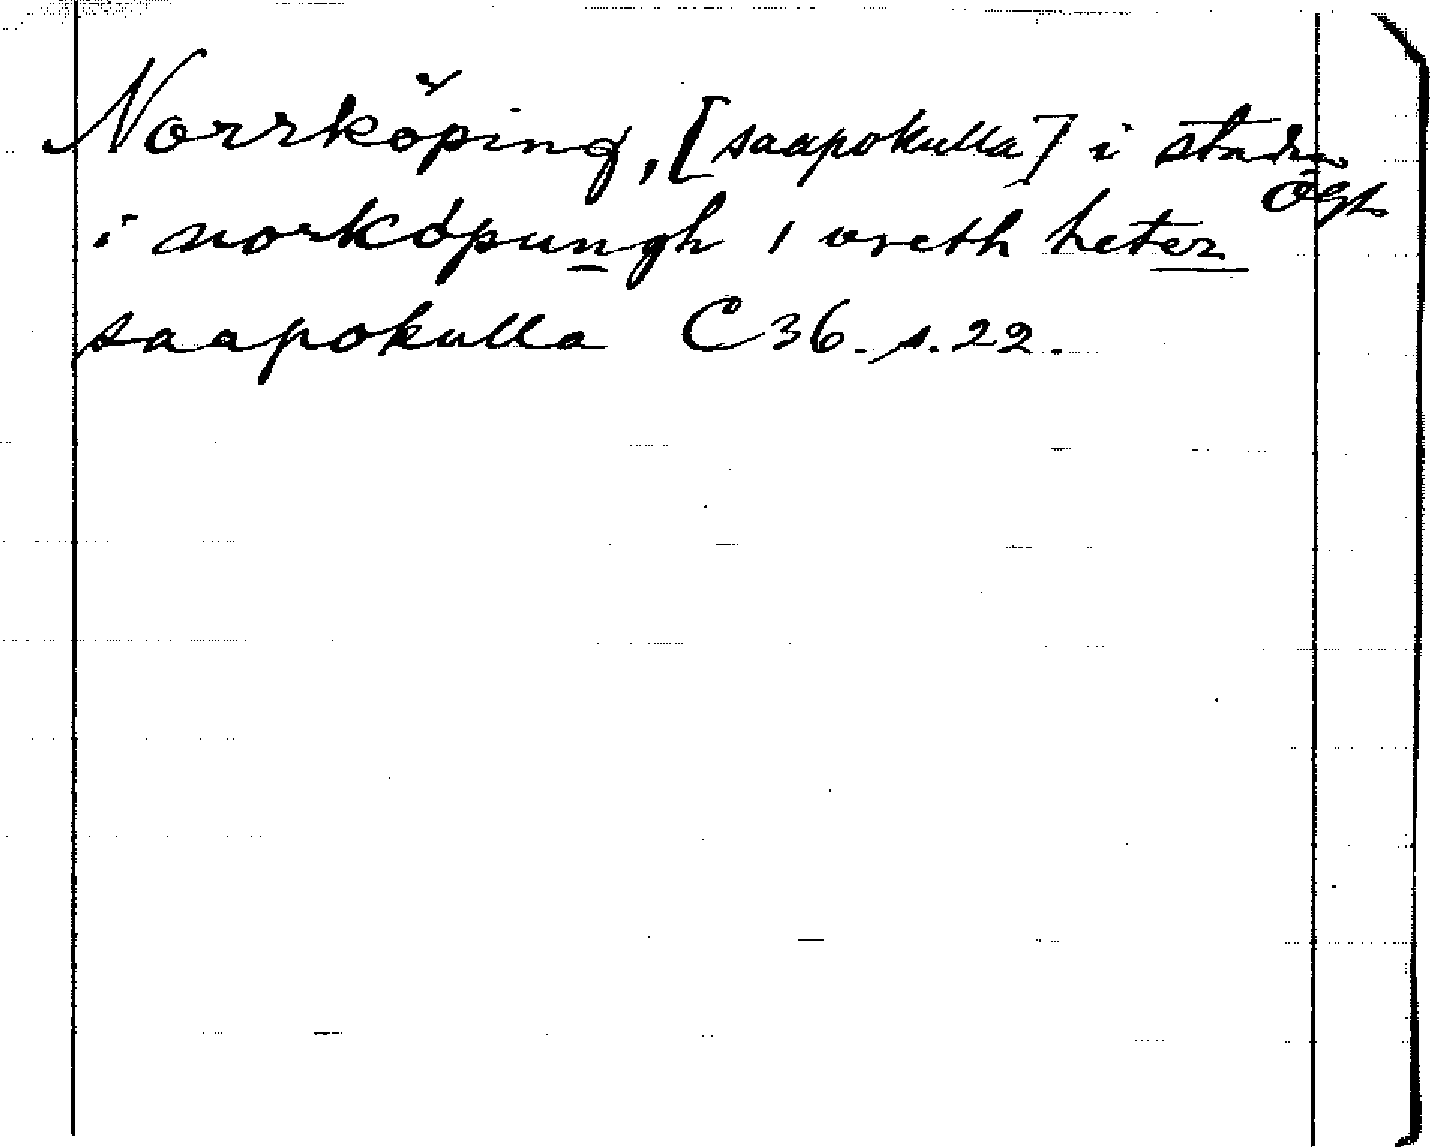 Norrköping, [saapokulla] i staden
Ögl.
i norköpungh 1 vreth heter
saapokulla C 36. s. 22.